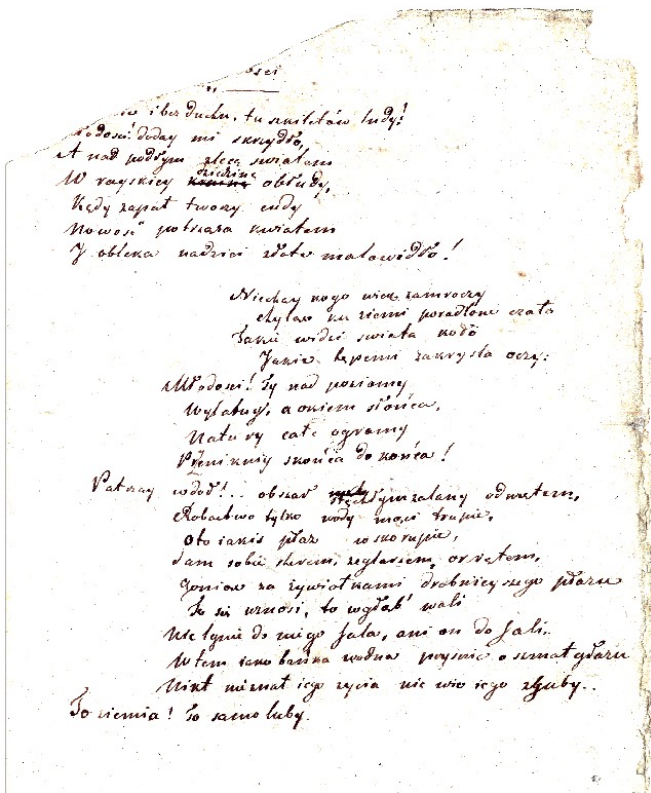 i bez ducha, tu szkiletów ludy!
doday mi skrzydło,
A nad podłym zlecę swiatem
W rayskiey dziedzinę obłudy,
Kędy zapał tworzy cudy
Nowość potrząsa kwiatem
Y obleka nadziei złote malowidło!
Niechay kogo wiek zamroczy
Chyląc ku ziemi poradlone czoło
Takie widzi swiata koło
Jakie tępemi zakrysla oczy:
Młodosci! Ty nad poziomy
Wylatuy, a okiem słońca,
Natury całe ogromy
Przeniknij z końca do końca!
Patrzay w doł!.. obszar zalany odmętem,
Robactwo tylko wody mąci trupie,
Oto iakis płaz w skorupie,
Sam sobie sterem, zeglarzem, orrętem,
Goniąc za zywiołkami drobnieyszego płazu
To się wznosi, to wgłąb' wali
Nie lgnie do niego fala, ani on do fali..
Wtem iako bańka wodna prysnie o szmat głazu
Nikt nieznał iego zycia nie wie iego zguby..
To ziemia! To samoluby.